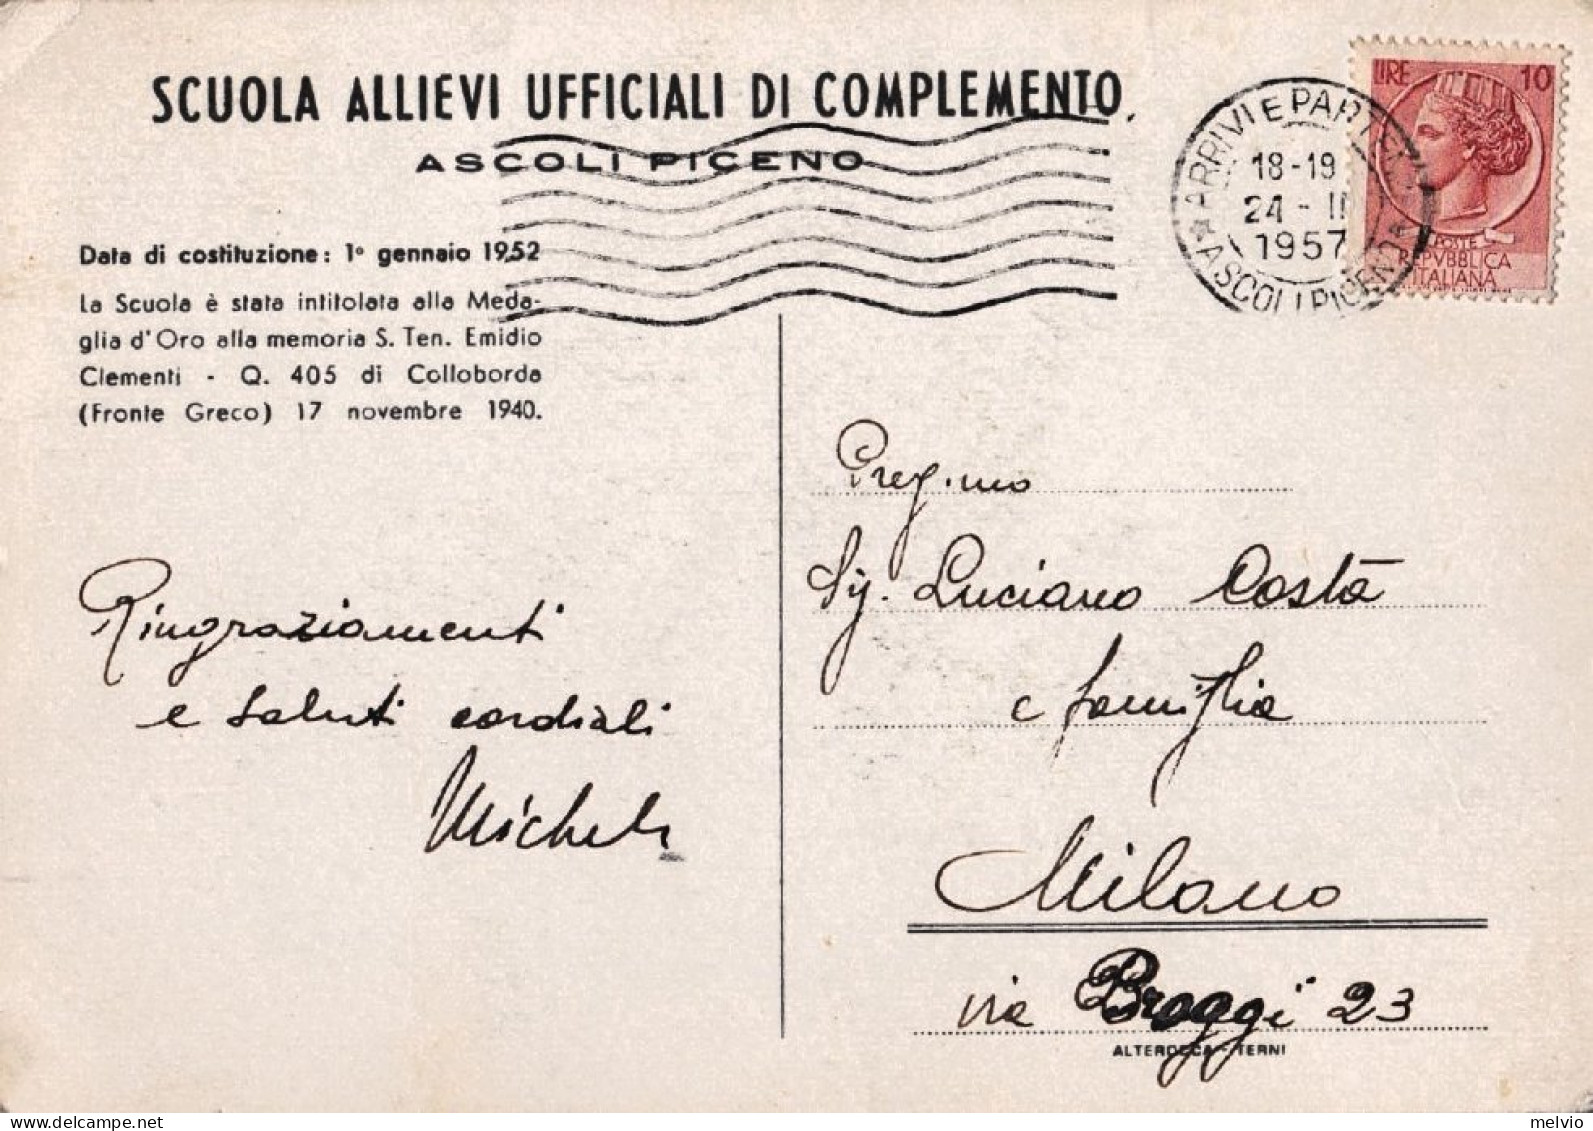 SCUOLA ALLIEVI UFFICIALI DI COMPLEMENTO.
ASCOLI PICENO
LIRE 10
POSTE
REPVBBLICA
ITALIANA
ARRIVI E PARTEN
18-19
24 - II
1957
ASCOLI PICENO
Data di costituzione: 1° gennaio 1952
La Scuola è stata intitolata alla Meda-
glia d'Oro alla memoria S. Ten. Emidio
Clementi - Q. 405 di Colloborda
(Fronte Greco) 17 novembre 1940.
Ringraziamenti
e saluti cordiali
Michele
Preg.mo
Sig. Luciano Costa
e famiglia
Milano
via Broggi 23
ALTEROCCA - TERNI
melvio